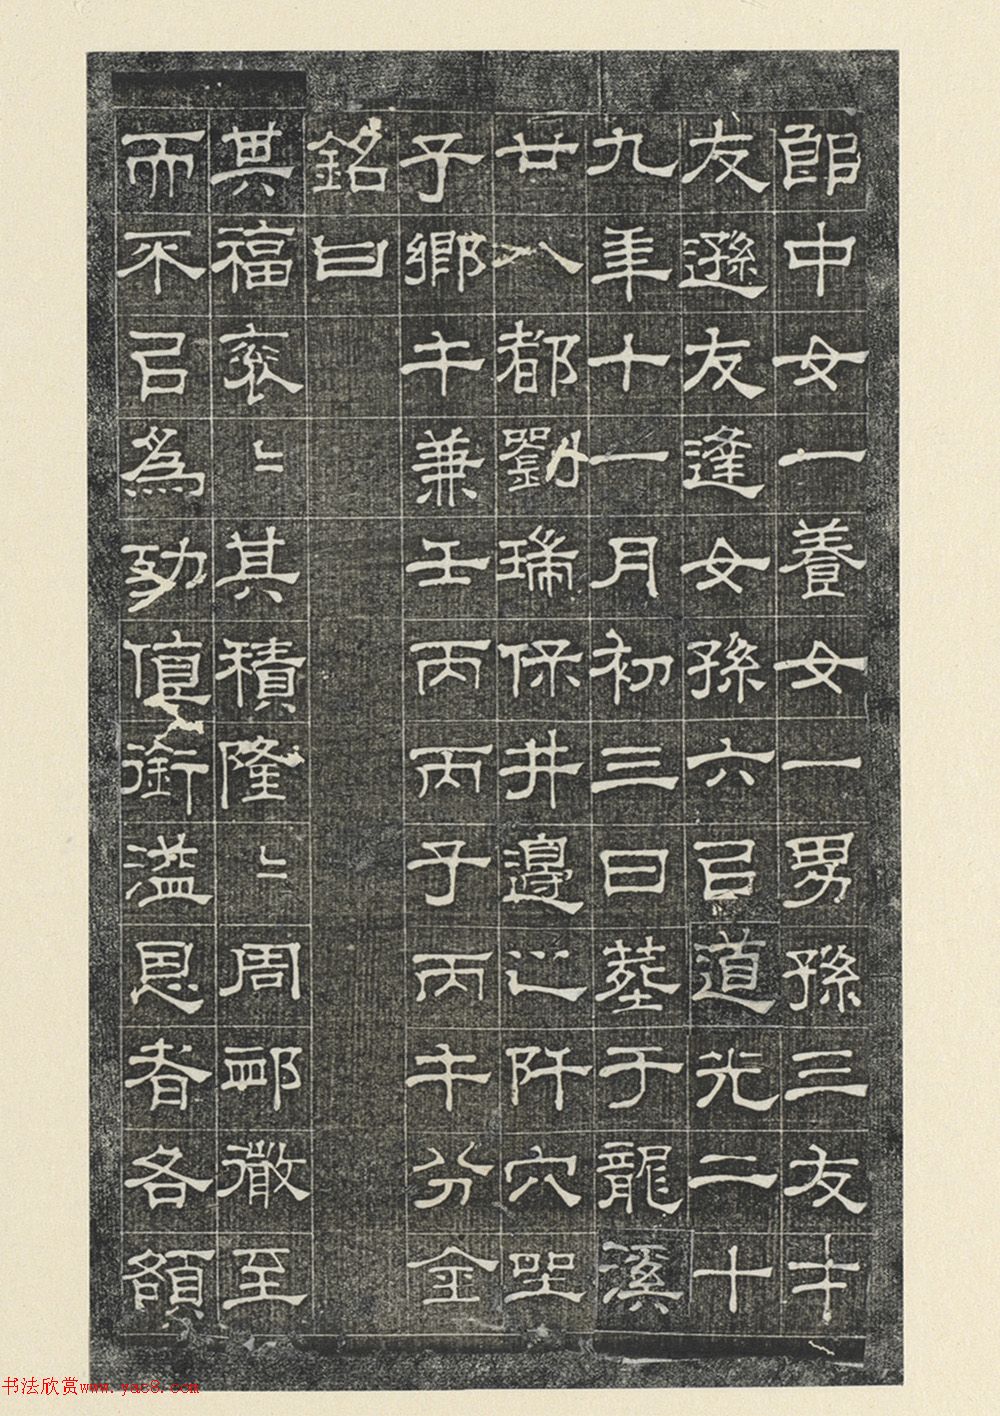 郎中女一養女一男孫三友才
友遜友逢女孫六㠯道光二十
九年十一月初三日葬于龍溪
廿八都劉瑞保井邊之阡穴坐
子鄉午兼壬丙丙子丙午分金
銘曰
其福衮〻其積隆〻周卹微至
而不㠯為劬銜溢恩者各額
书法欣赏www.yac8.com